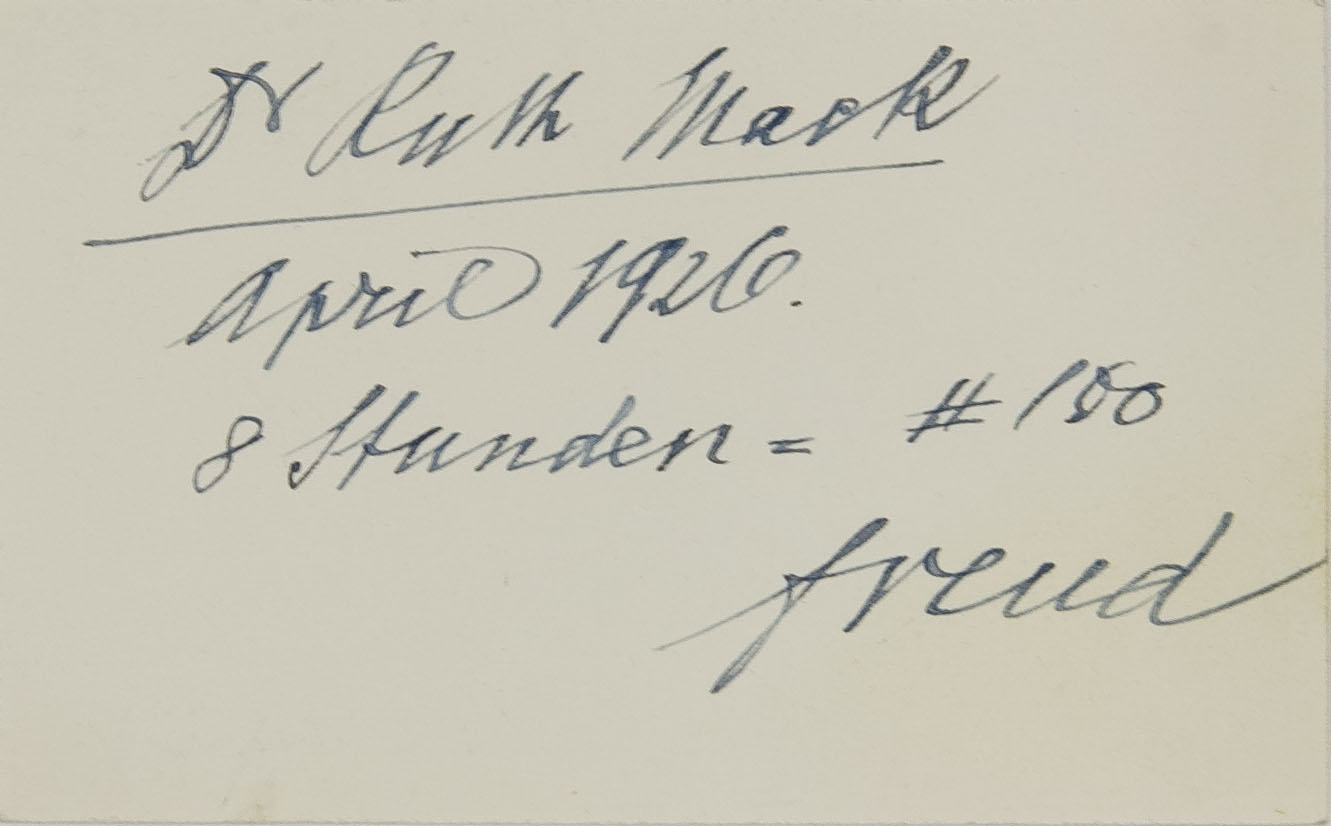 Dr Ruth Mack
April 1926.
8 Stunden = # 150
Freud